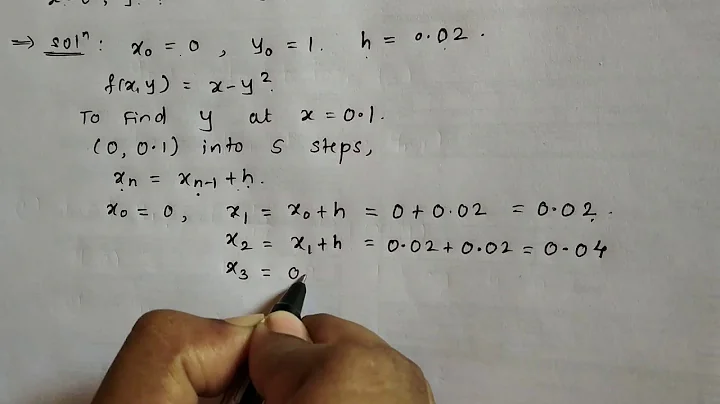 ⇒ solⁿ : x₀ = 0 , y₀ = 1. h = 0.02.
f(x,y) = x-y²
To Find y at x = 0.1.
(0, 0.1) into 5 steps,
xₙ = xₙ₋₁ + h.
x₀ = 0, x₁ = x₀ + h = 0 + 0.02 = 0.02.
x₂ = x₁ + h = 0.02 + 0.02 = 0.04
x₃ = 0